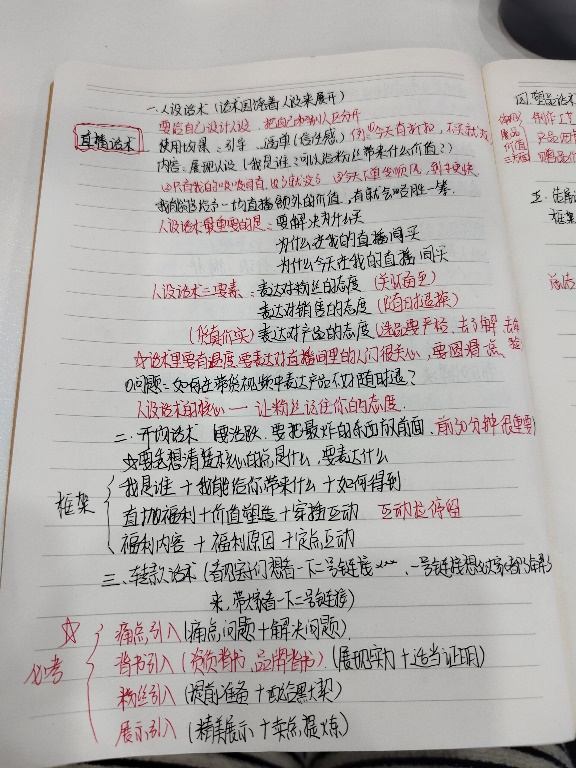 直播话术
一.人设话术(话术围绕着人设来展开)
要给自己设计人设,把自己和别人区分开
使用效果:引导、逼单(信任感) 例:今天有折扣,不买就没
内容:展现人设(我是谁?可以给粉丝带来什么价值?)
我能够给予一切直播额外的价值,
人设话术最重要的是:要解决为什么买
为什么在我的直播间买
为什么今天在我的直播间买
人设话术三要素:表达对粉丝的态度(关怀备至)
表达对销售的态度(随时退换)
(货真价实)表达对产品的态度(选品要严格,去了解 去体验
☆话术里要有温度要表达对直播间里的人们很关心,要圆滑点
问题:如何在带货视频中表达产品不好随时退?
人设话术的核心一 让粉丝记住你的态度.
二.开场话术 要活跃.要把最炸的东西放前面.前30分钟很重要)
☆要先想清楚核心的点是什么,要表达什么
框架
我是谁+我能给你带来什么+如何得到
直抛福利+价值塑造+穿插互动 互动拉停留
福利内容 + 福利原因 +定点互动
三、转款话术(有观众们想看一下二号链接…、一号链接想必大家都了解
来,带大家看一下二号链接)
☆ 必考
痛点引入(痛点问题+解决问题)
背书引入(资质背书、品牌背书)(展现实力+适当证明)
粉丝引入(提前准备+配合默契)
展示引入(精美展示+卖点提炼)
四.塑品话术
制作工艺
产品
五.
框架